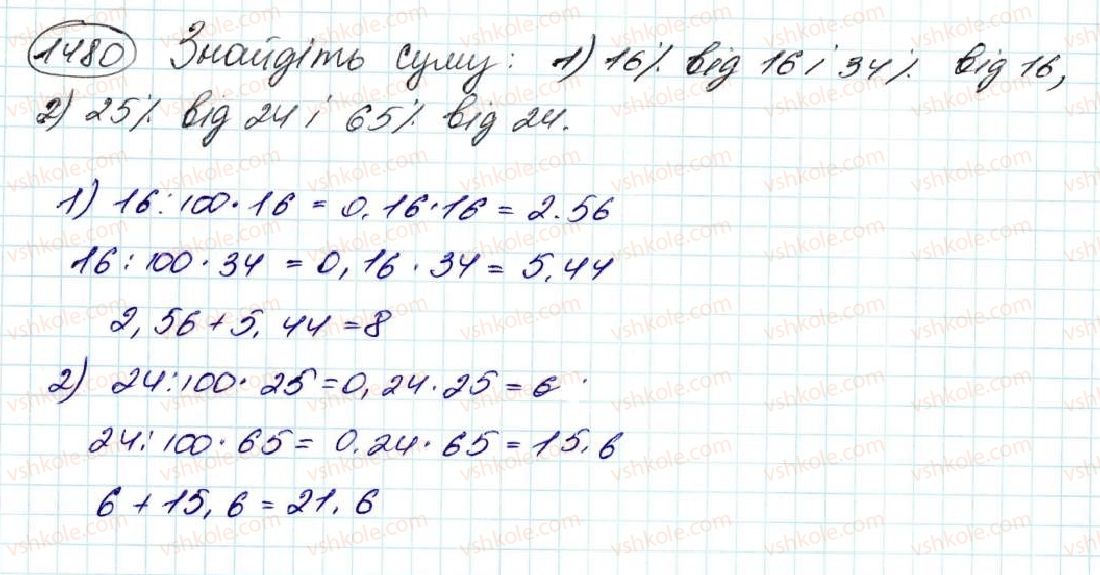 1480 Знайдіть суму: 1) 16% від 16 і 34% від 16,
2) 25% від 24 і 65% від 24.
1) 16:100·16 = 0,16·16 = 2.56
16:100·34 = 0,16·34 = 5,44
2,56+5,44=8
2) 24:100·25=0,24·25=6
24:100·65= 0.24·65=15,6
6+15,6=21,6